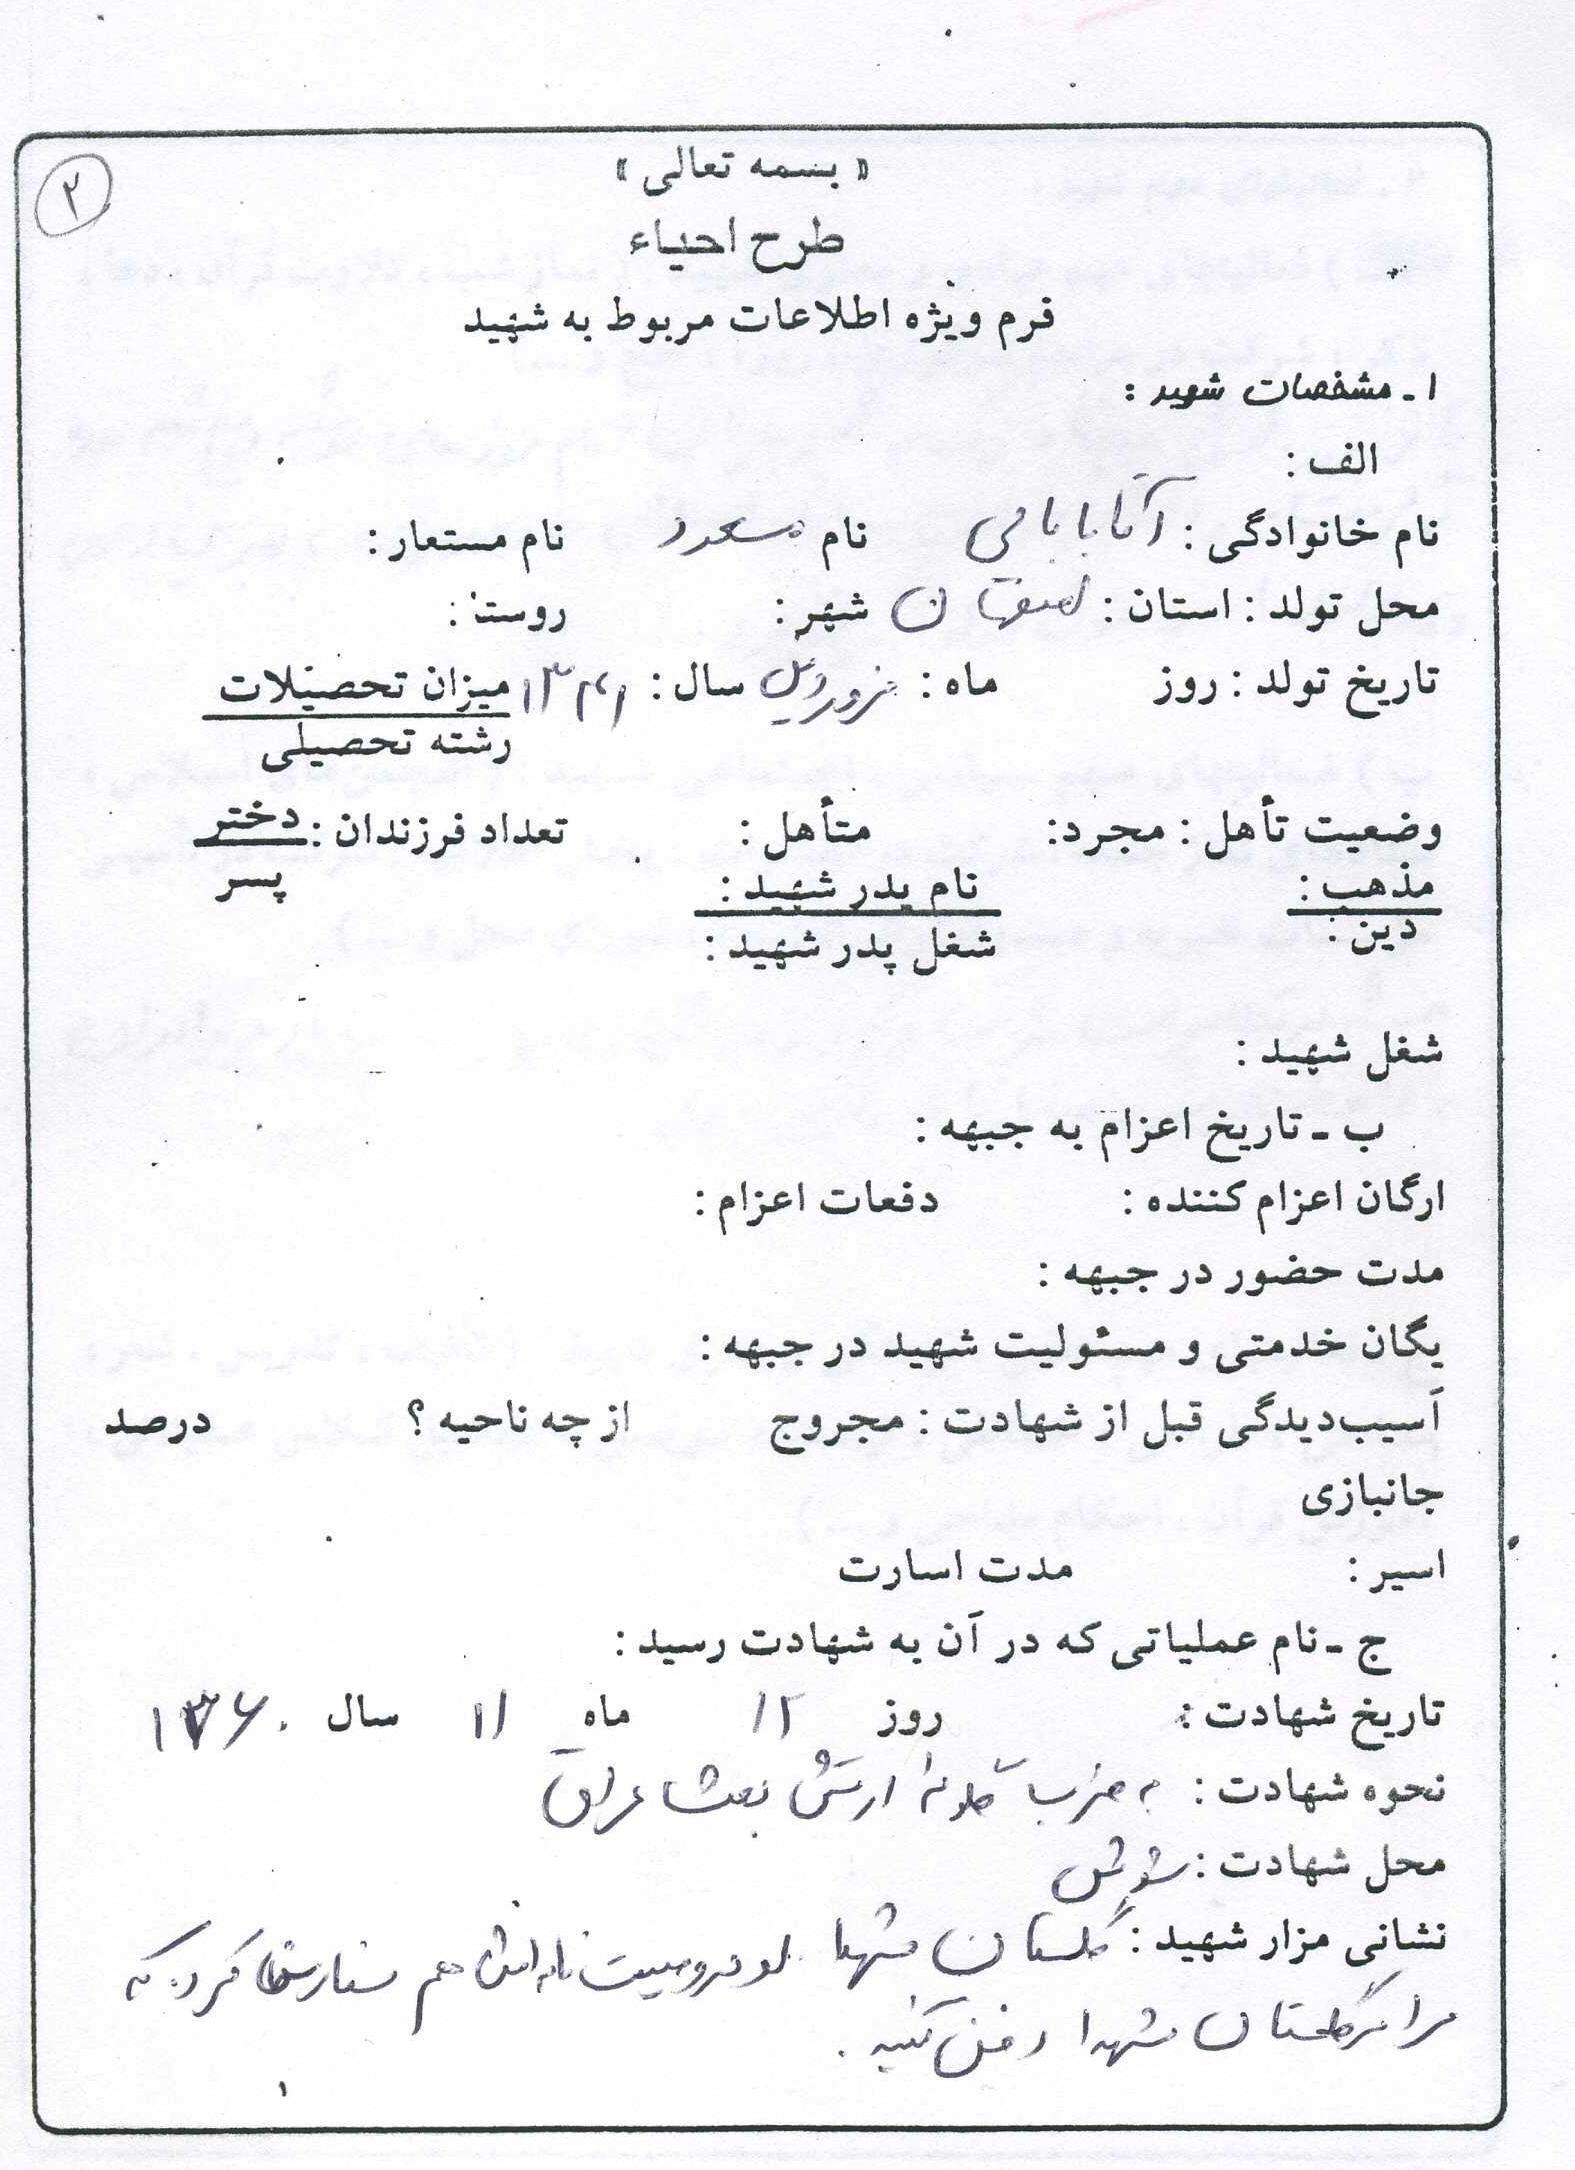 ۲
« بسمه تعالی »
طرح احیاء
فرم ویژه اطلاعات مربوط به شهید
۱ ـ مشخصات شهید :
الف :
نام خانوادگی : آقابابائی نام مسعود نام مستعار :
محل تولد : استان : اصفهان شهر : روستا :
تاریخ تولد : روز ماه : فروردین سال : ۱۳۴۱ میزان تحصیلات
رشته تحصیلی
وضعیت تأهل : مجرد: متأهل : تعداد فرزندان : دختر
پسر
مذهب : نام پدر شهید :
دین : شغل پدر شهید :
شغل شهید :
ب ـ تاریخ اعزام به جبهه :
ارگان اعزام کننده : دفعات اعزام :
مدت حضور در جبهه :
یگان خدمتی و مسئولیت شهید در جبهه :
آسیب‌دیدگی قبل از شهادت : مجروح از چه ناحیه ؟ درصد
جانبازی
اسیر : مدت اسارت
ج ـ نام عملیاتی که در آن به شهادت رسید :
تاریخ شهادت : روز ۱۲ ماه ۱۱ سال ۱۳۶۰
نحوه شهادت : به ضرب گلوله ارتش بعث عراق
محل شهادت : شوش
نشانی مزار شهید : گلستان شهدا او در وصیت نامه اش هم سفارش کرد که
مرا در گلستان شهدا دفن کنید .
۱